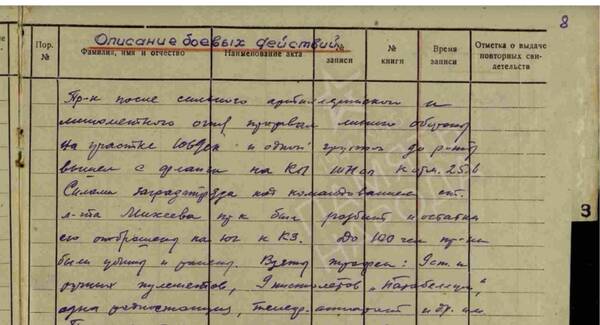 8
Описание боевых действий
Пор. № Фамилия, имя и отчество Наименование акта № записи № книги Время записи Отметка о выдаче повторных сви- детельств
Пр-к после сильного артиллерийского и
минометного огня прорвал линию обороны
на участке и одной группой до роты
вышел с фланга на КП
Силами заградотряда под командованием ст.
л-та Михеева пр-к был разбит и остатки
его отброшены на юг к КЗ. До 100 чел пр-ка
были убиты и ранены. Взяты трофеи: 9 ст. и
ручных пулеметов, 9 пистолетов „Парабеллум",
одна радиостанция, телегр. аппарат и др. им
З